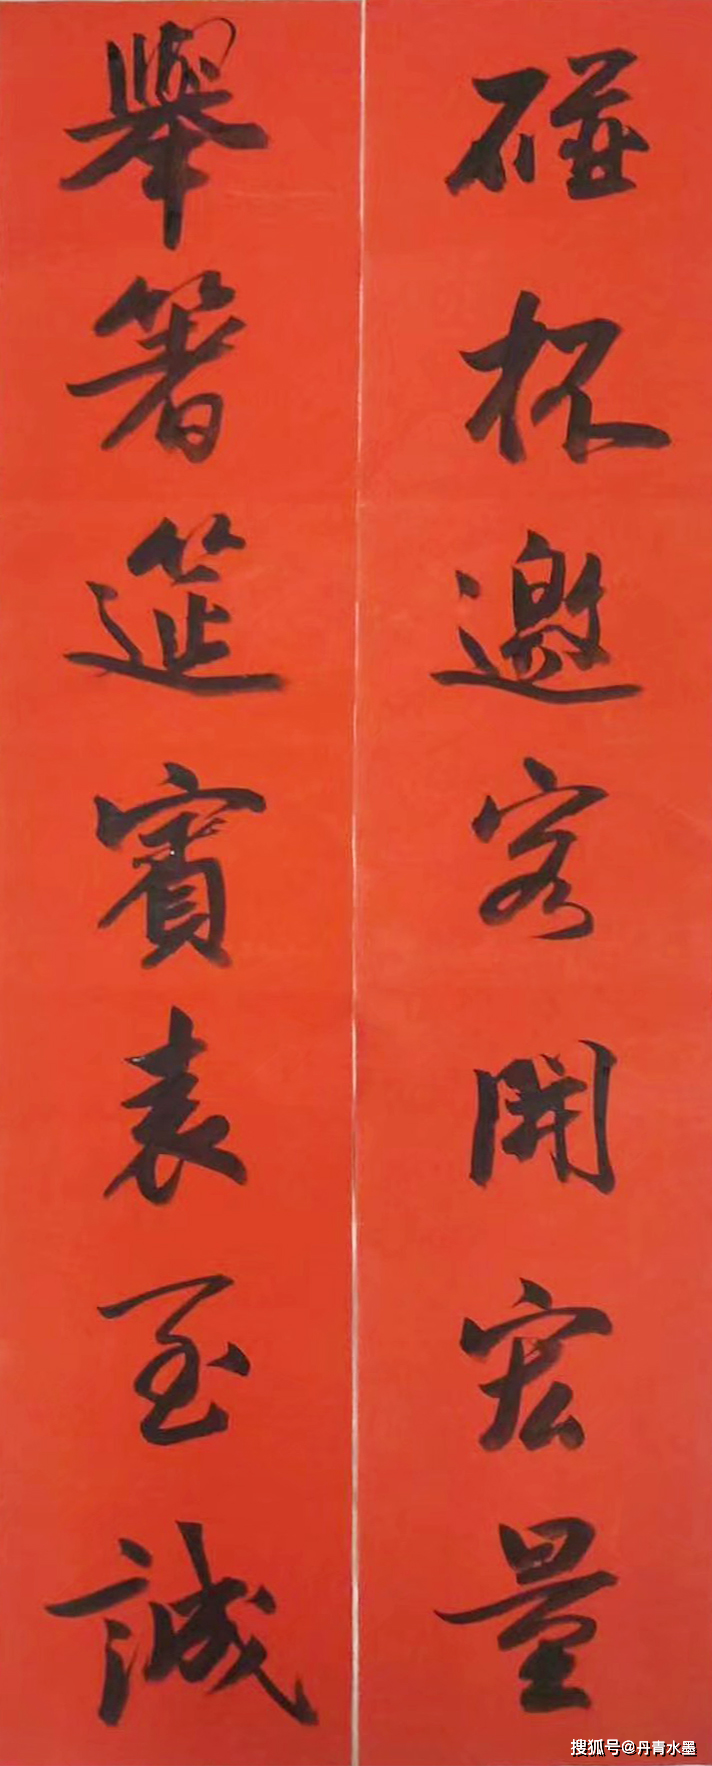 碰杯邀客開宏量
舉箸筵賓表至誠
搜狐号@丹青水墨